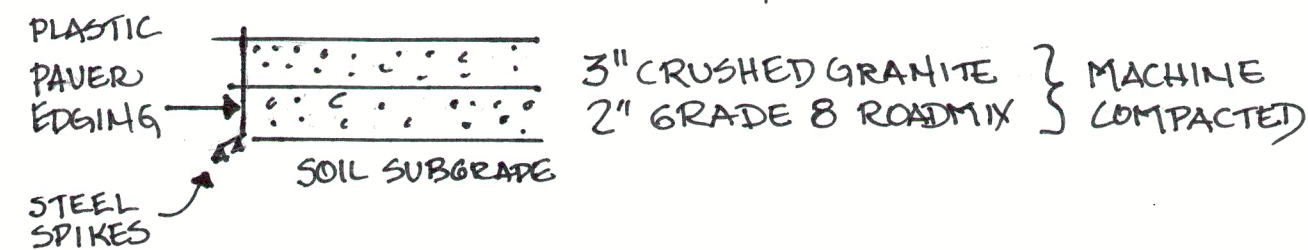 PLASTIC
PAVER
EDGING
3" CRUSHED GRANITE
2" GRADE 8 ROADMIX
MACHINE
COMPACTED
SOIL SUBGRADE
STEEL
SPIKES